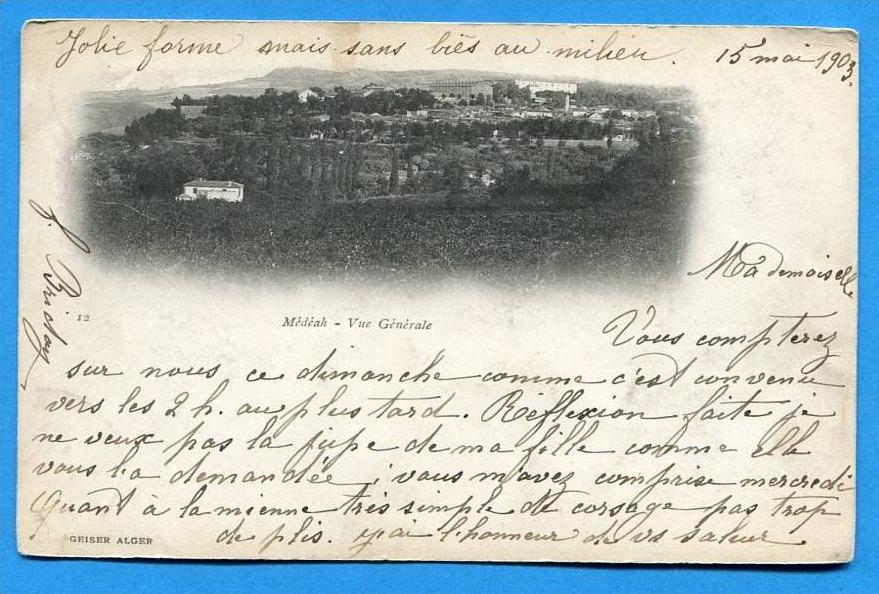 Jolie forme mais sans biès au milieu. 15 mai 1903.
Mademoiselle
12
Médéah - Vue Générale
Vous compterez
sur nous ce dimanche comme c'est convenu
vers les 2 h. au plus tard. Réflexion faite je
ne veux pas la jupe de ma fille comme Elle
vous l'a demandée ; vous m'avez comprise mercredi
Quant à la mienne très simple et corsage pas trop
de plis. j'ai l'honneur de vs saluer
GEISER ALGER
J.